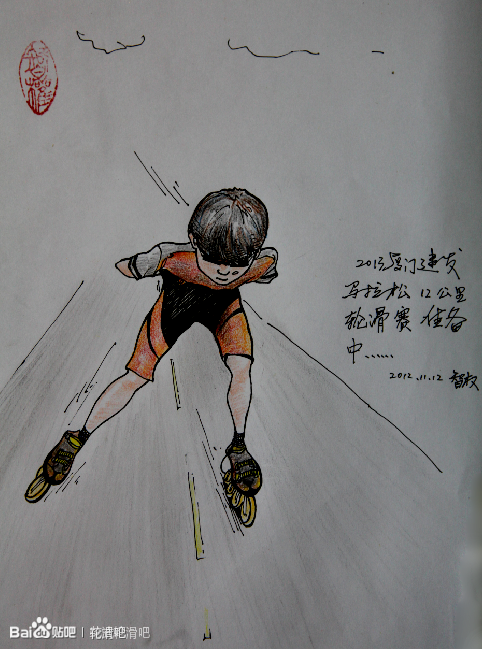 2013厦门建发
马拉松 12公里
轮滑赛 准备
中......
2012.11.12
Bai贴吧 | 轮滑吧